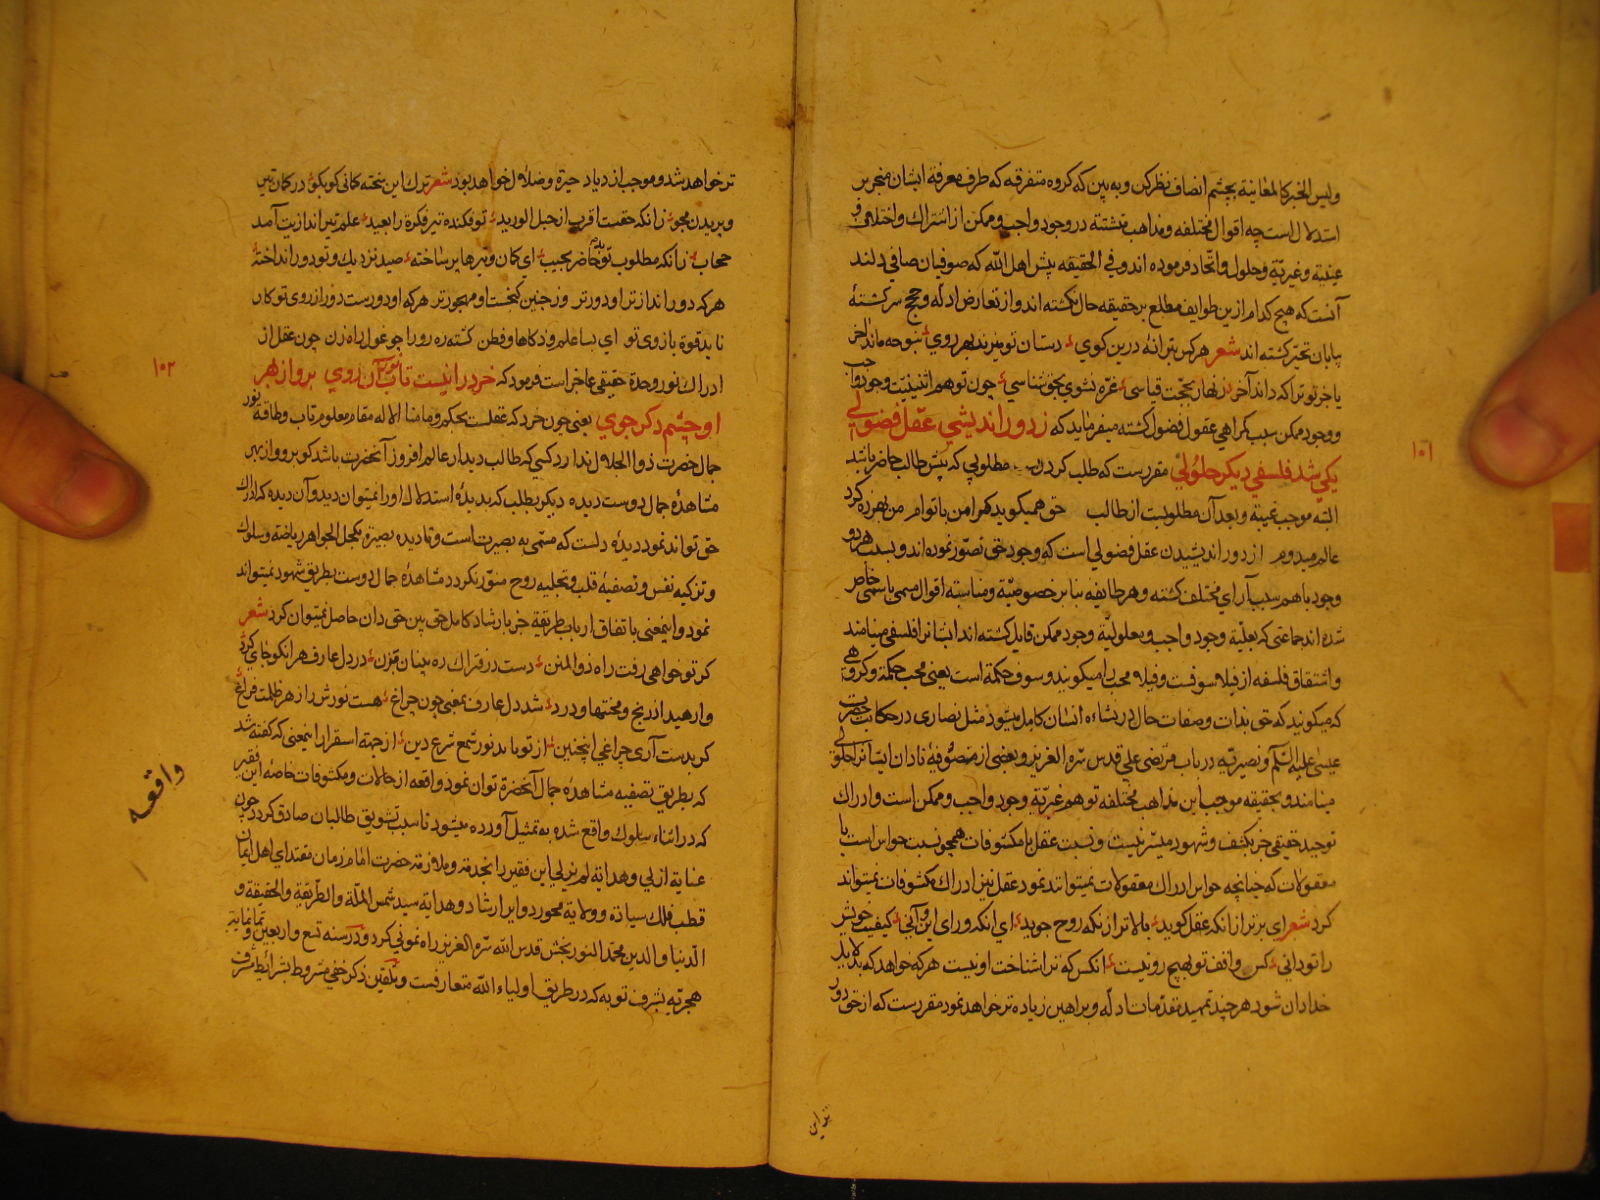 ولیس الخبر کالمعاینة بچشم انصاف نظر کن و به بین که کروه متفرقه که طرف معرفة ایشان منحصر در
استدلال است چه اقوال مختلفه و مذاهب متشتته در وجود واجب و ممکن از اشتراک و اختلاف و
عینیة و غیریّة و حلول و اتّحاد فرموده اند و فی الحقیقه پیش اهل الله که صوفیان صافی دلند
آنست که هیچ کدام ازین طوایف مطلع بر حقیقه حال نکشته اند و از تعارض ادلّه و حجج سرکشتهٔ
بیابان تحیّر کشته اند شعر هر کس ترانهٔ درین کوی دستان تو میزند بهر روی
یا خر تو ترا که داند آخر زنهار بحجّت قیاسی غرّه نشوی بحق شناسی چون توهم اثنینیّت وجود واجب
و وجود ممکن سبب کمراهی عقول فضول کشته میفرماید که ز دور اندیشی عقل فضولی
یکی شد فلسفی دیکر حلولی مقررست که طلب کردن مطلوبی که پیش طالب حاضر باشد
البته موجب غیبة و بعد آن مطلوبست از طالب حق همیکوید که مر امن با تو ام من بهرزه کرد
عالم میدوم از دور اندیشیدن عقل فضولی است که وجود حق تصوّر نموده اند و نسبت هر دو
وجود باهم سبب آرای مختلف کشته و هر طایفه بنا بر خصوصیّة و مناسبة اقوال مسمی باسمی خاص
شده اند جماعتی که بعلیّة وجود واجب و معلولیّة وجود ممکن قایل کشته اند ایشانرا فلسفی مینامند
و اشتقاق فلسفه از فیلاسوفست و فیلا محب را میکویند و سوف حکمة است یعنی محب حکمة و کروهی
که میکویند که حق بذات و صفات حال در نشاءه انسان کامل میشود مثل نصاری در حکایت حضرت
عیسی علیه السّلم و نصیریّه در باب مرتضی علی قدس سرّه العزیز و بعضی از متصوّفهٔ نادان ایشانرا حلولی
مینامند و بحقیقه موجب این مذاهب مختلفه توهم غیریّة وجود واجب و ممکن است و ادراک
توحید حقیقی جز بکشف و شهود میسّر نیست و نسبت عقل با مکشوفات همچو نسبت حواس است با
معقولات که چنانچه حواس ادراک معقولات نمیتوانند نمود عقل نیز ادراک مکشوفات نمیتواند
کرد شعر ای برتر از انکه عقل کوید بالاتر از انکه روح جوید ای انکه ورای این و آنی کیفیّت خویش
را تو دانی کس واقف تو بهیچ رو نیست انکس که ترا شناخت او نیست هر که خواهد که
خدا دان شود هر چند تمهید مقدمات ادلّه و براهین زیاده تر خواهد نمود مقررست که از حق دور
تر خواهد شد و موجب ازدیاد حیرة و ضلال خواهد بود شعر ترک این سخته کمانی کو بکو در کمان تیر
و بریدن مجو زانکه حقست اقرب از حبل الورید تو فکنده تیر فکرة را بعید علم تیر اندازیت آمد
حجاب زانکه مطلوب تو بد حاضر بجیب ای کمان و تیرها بر ساخته صید نزدیک و تو دور انداخته
هر که دور انداز تر او دورتر وز چنین کنجست او مهجورتر هر که او دورست دور از روی تو کار
ناید قوة بازوی تو ای بسا علم و ذکاها و فطن کشته ره رو را چو غول راه زن چون عقل از
ادراک نور وحدة حقیقی عاجز است فرمود که خرد را نیست تاب نور آن روی برو از بهر
او چشم دکر جوی یعنی چون خرد که عقلست بحکم و ما منا الا له مقام معلوم تاب و طاقة نور
جمال حضرت ذو الجلال ندارد کسی که طالب دیدار عالم افروز آنحضرت باشد کو برو و از بهر
مشاهدهٔ جمال دوست دیدهٔ دیکر بطلب که بدیدهٔ استدلال او را نمیتوان دید و آن دیده که ادراک
حق تواند نمود دیدهٔ دلست که مسمّی به بصیرت است و تا دیده بصیرة بکحل الجواهر ریاضة و سلوک
و تزکیه نفس و تصفیهٔ قلب و تجلیه روح منوّر نکردد مشاهدهٔ جمال دوست بطریق شهود نمیتواند
نمود و اینمعنی باتفاق ارباب طریقة جز بارشاد کامل حق بین حق دان حاصل نمیتوان کرد شعر
کر تو خواهی رفت راه ذو المنن دست در فتراک ره بینان بزن در دل عارف هرانکو جای کرد
وارهید از رنج و محنتها و درد شد دل عارف بمعنی چون چراغ هست نورش را ز هر ظلمت فراغ
کر بدست آری چراغی اینچنین از تو یابد نور شمع شرع دین از جهة استقرار اینمعنی که کفته شد
که بطریق تصفیه مشاهدهٔ جمال آنحضرة توان نمود واقعه از حالات و مکشوفات خاصهٔ این فقیر
که در اثناء سلوک واقع شده به تمثیل آورده میشود تا سبب تشویق طالبان صادق کردد چون
عنایة ازلی و هدایة لم یزلی این فقیر را بخدمة و ملازمة حضرت امام زمان مقتدای اهل ایمان
قطب فلک سیادة و ولایة محور دوایر ارشاد و هدایة سید شمس الملّة و الطریقة و الحقیقة و
الدّنیا و الدین محمّد النوربخش قدس الله سرّه العزیز راه نمونی کرد و در سنه تسع و اربعین و ثمانمایة
هجریّه بشرف توبه که در طریق اولیاء الله متعارفست و بتلقین ذکر خفی مشروط بشرایط مشرف
۱۰۱
۱۰۲
واقعه